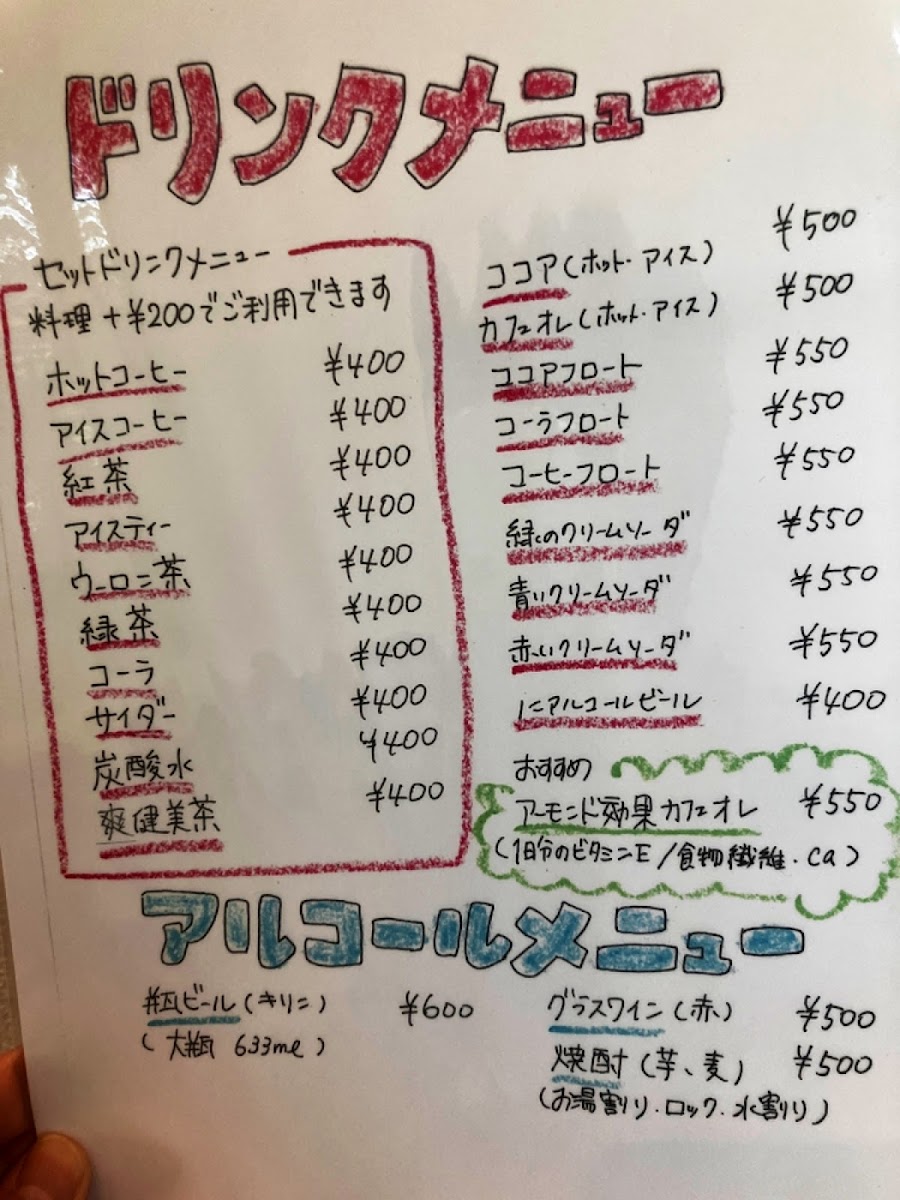 ドリンクメニュー
セットドリンクメニュー
料理+¥200でご利用できます
ホットコーヒー ¥400
アイスコーヒー ¥400
紅茶 ¥400
アイスティー ¥400
ウーロン茶 ¥400
緑茶 ¥400
コーラ ¥400
サイダー ¥400
炭酸水 ¥400
爽健美茶 ¥400
ココア(ホット・アイス) ¥500
カフェオレ(ホット・アイス) ¥500
ココアフロート ¥550
コーラフロート ¥550
コーヒーフロート ¥550
緑のクリームソーダ ¥550
青いクリームソーダ ¥550
赤いクリームソーダ ¥550
ノンアルコールビール ¥400
おすすめ
アーモンド効果カフェオレ ¥550
(1日分のビタミンE/食物繊維・ca)
アルコールメニュー
瓶ビール(キリン) ¥600
(大瓶 633ml)
グラスワイン(赤) ¥500
焼酎(芋、麦) ¥500
(お湯割り・ロック・水割り)